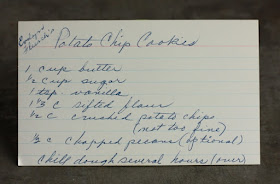 Potato Chip Cookies
1 cup butter
1/2 cup sugar
1 tsp. vanilla
1 1/3 c sifted flour
1/2 c crushed potato chips
(not too fine)
1/3 c chopped pecans (optional)
Chill dough several hours (over)